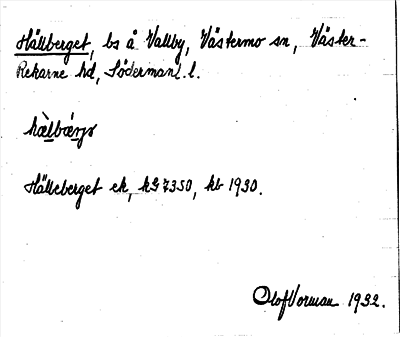 Hällberget, bs å Vallby, Västermo sn, Väster-
Rekarne hd, Söderman. l.
Hälleberget ek, kG 7350, kb 1930.
Olof Vorman 1932.